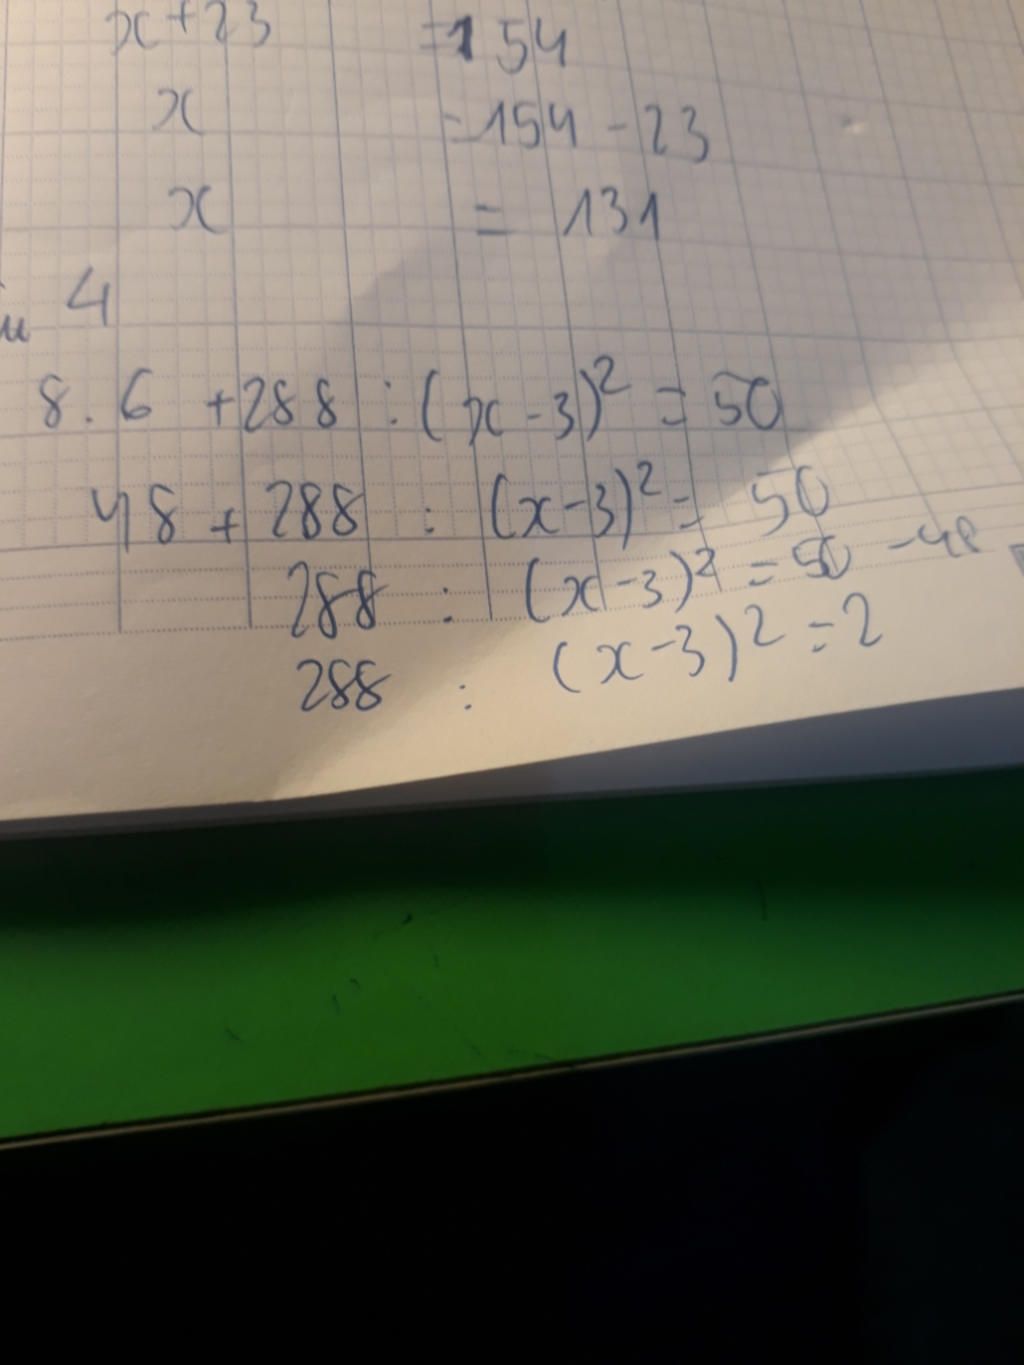 x+23 =154
x =154-23
x = 131
4
8.6 +288 :(x-3)² = 50
48 + 288 : (x-3)² = 50
288 : (x-3)² = 50 -48
288 : (x-3)² = 2